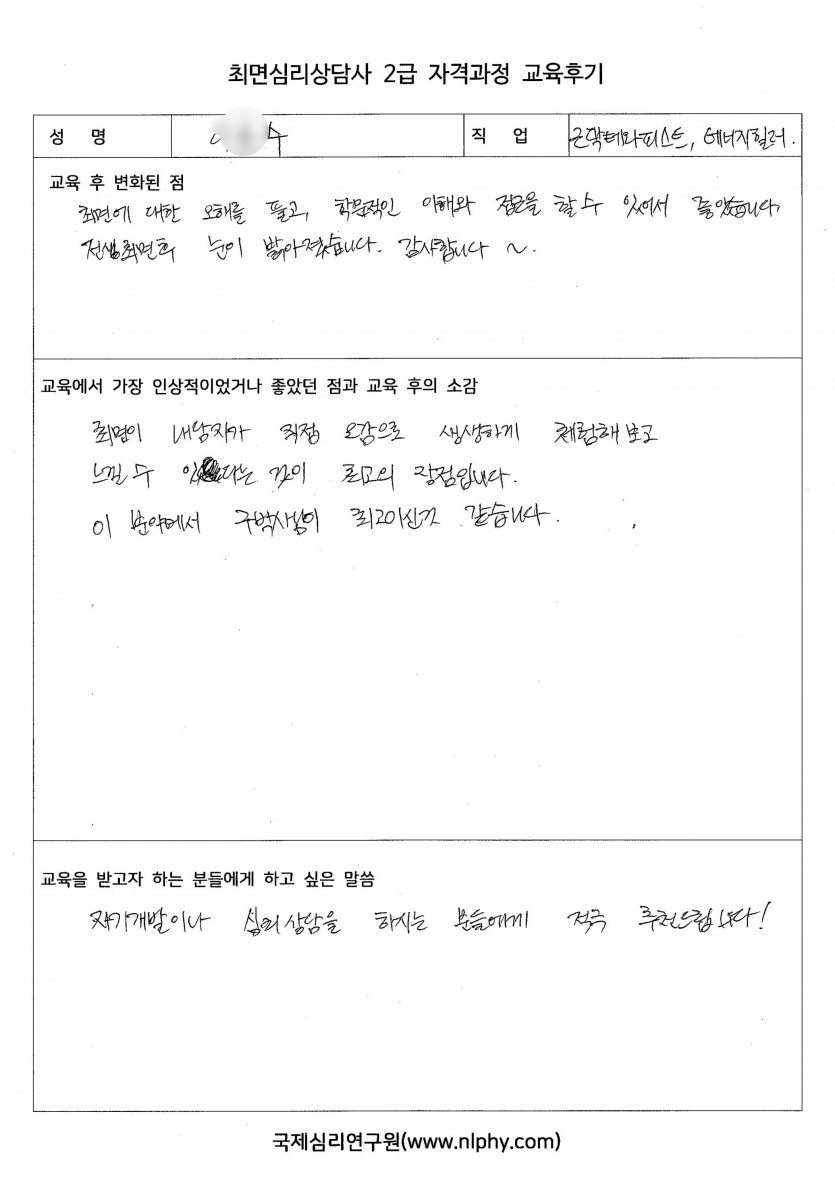 최면심리상담사 2급 자격과정 교육후기
성 명 수 직 업 근막테라피스트, 에너지힐러.
교육 후 변화된 점
최면에 대한 오해를 풀고, 학문적인 이해와 접근을 할 수 있어서 좋았습니다.
전생최면의 눈이 밝아졌습니다. 감사합니다 ~.
교육에서 가장 인상적이었거나 좋았던 점과 교육 후의 소감
최면이 내담자가 직접 오감으로 생생하게 체험해보고
느낄 수 있다는 것이 최고의 장점입니다.
이 분야에서 구박사님이 최고이신것 같습니다.
교육을 받고자 하는 분들에게 하고 싶은 말씀
자기개발이나 심리상담을 하시는 분들에게 적극 추천드립니다!
국제심리연구원(www.nlphy.com)